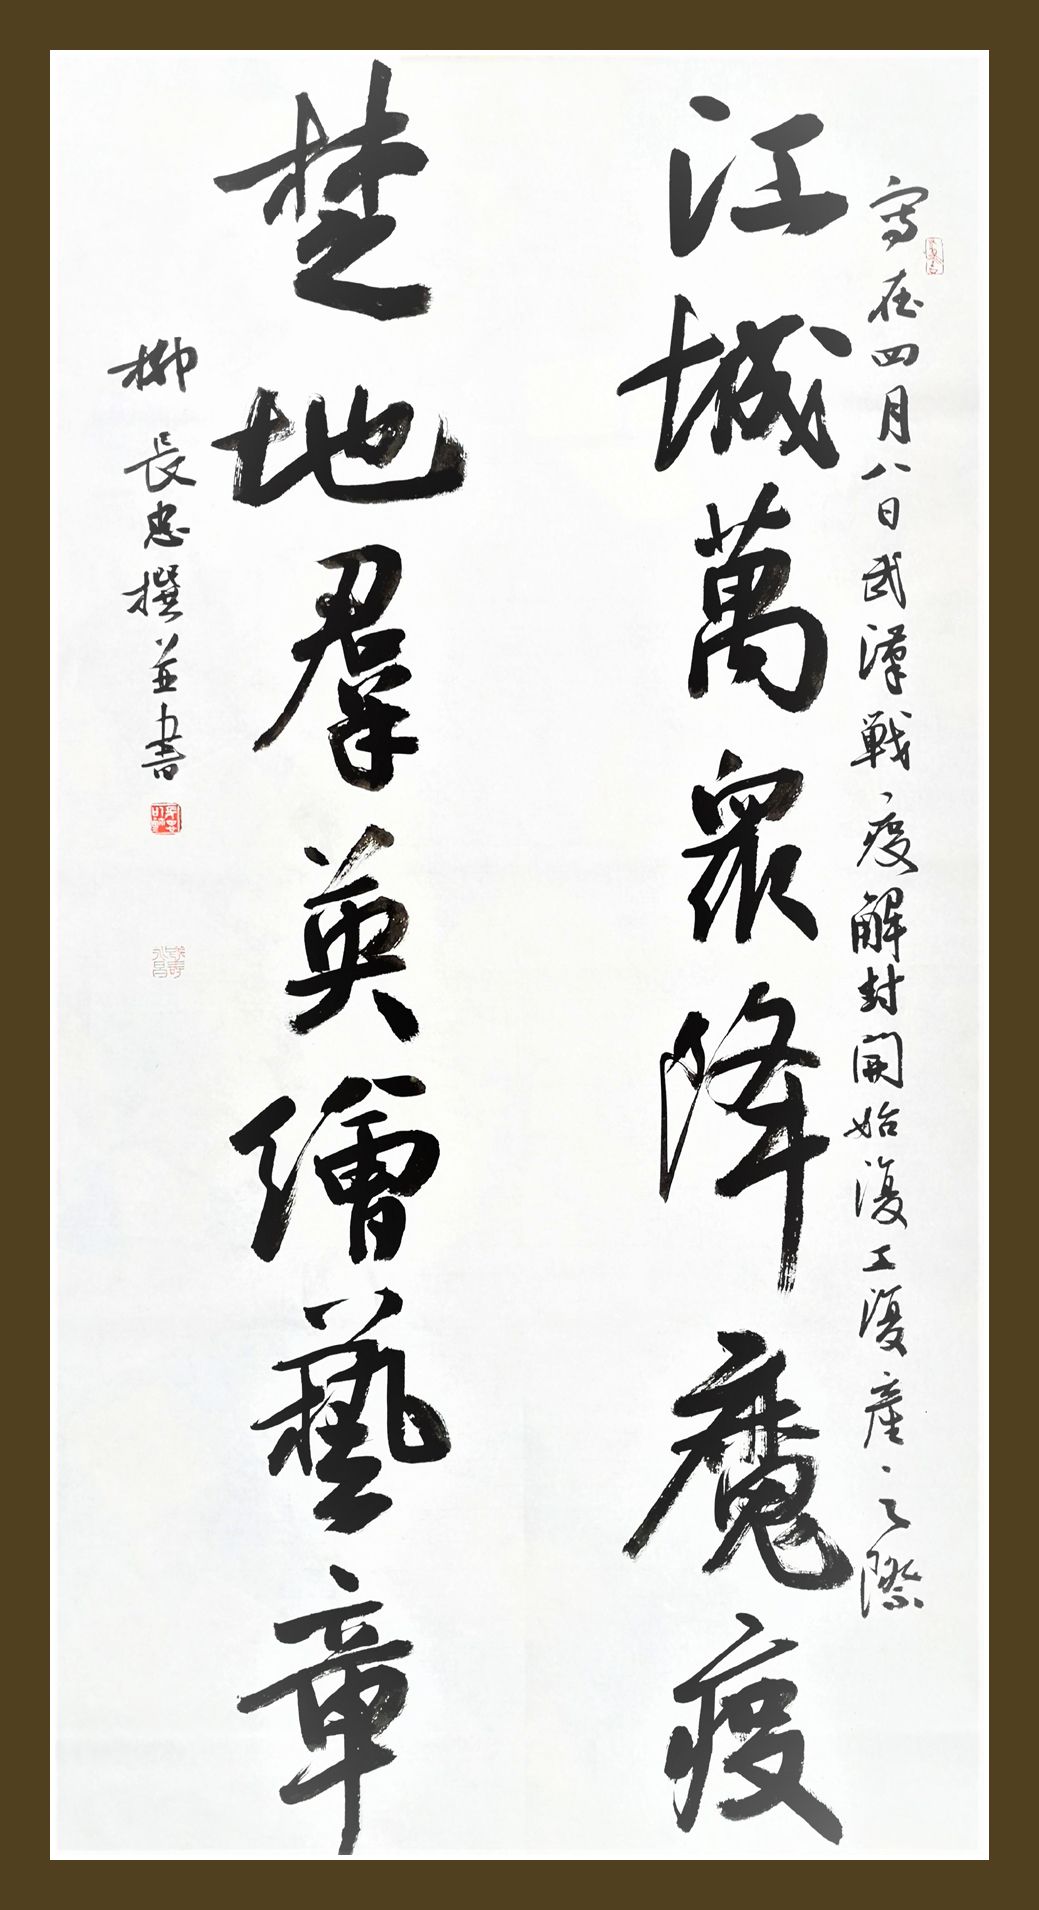 寫在四月八日武漢戰疫解封開始復工復產之際
江城萬眾降魔疫
楚地群英繪藝章
柳長忠撰並書